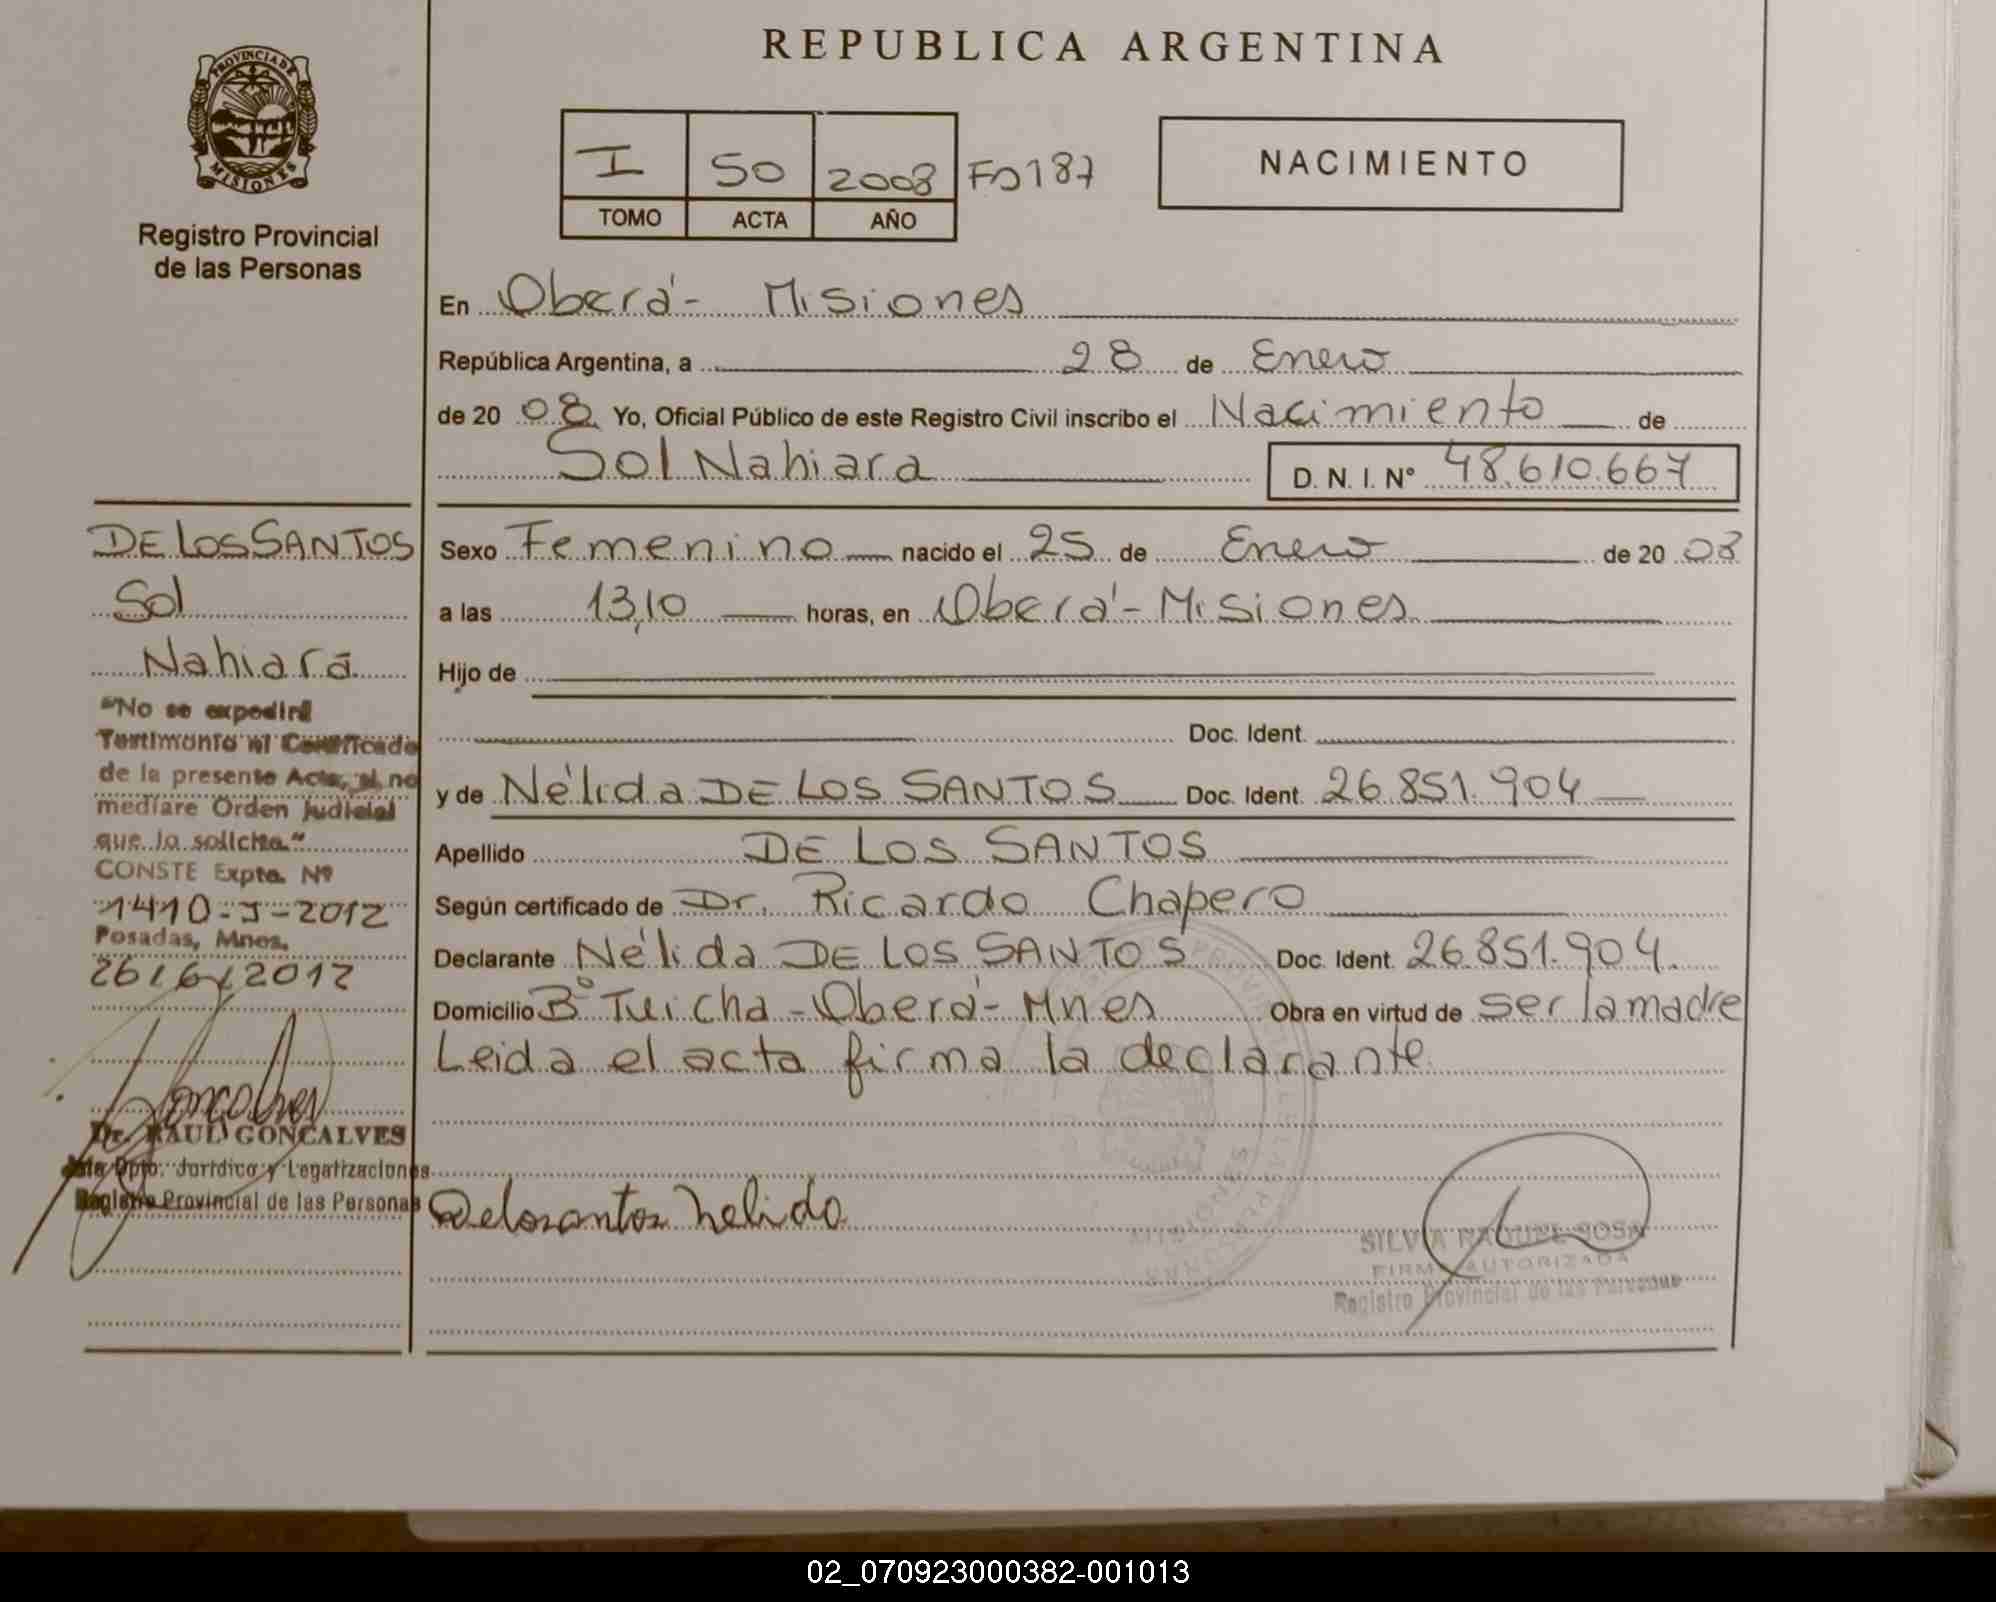 REPUBLICA ARGENTINA
PROVINCIA DE MISIONES
Registro Provincial
de las Personas
I 50 2008 Fo 187
TOMO ACTA AÑO
NACIMIENTO
En Oberá - Misiones
República Argentina, a 28 de Enero
de 20 08 Yo, Oficial Público de este Registro Civil inscribo el Nacimiento de
Sol Nahiara D. N. I. N° 48.610.667
Sexo Femenino nacido el 25 de Enero de 20 08
a las 13,10 horas, en Oberá - Misiones
Hijo de
Doc. Ident.
y de Nélida DE LOS SANTOS Doc. Ident. 26.851.904
Apellido DE LOS SANTOS
Según certificado de Dr. Ricardo Chapero
Declarante Nélida DE LOS SANTOS Doc. Ident. 26.851.904.
Domicilio B° Tuicha - Oberá - Mnes Obra en virtud de ser la madre
Leida el acta firma la declarante
Delosantos Nelida
SILVIA RAQUEL SOSA
FIRMA AUTORIZADA
Registro Provincial de las Personas
DE LOS SANTOS
Sol
Nahiara
"No se expedirá
Testimonio ni Certificado
de la presente Acta, si no
mediare Orden Judicial
que lo solicite."
CONSTE Expte. Nº
1410-J-2012
Posadas, Mnes.
26/6/2012
Dr. RAUL GONCALVES
Jefe Dpto. Jurídico y Legalizaciones
Registro Provincial de las Personas
02_070923000382-001013